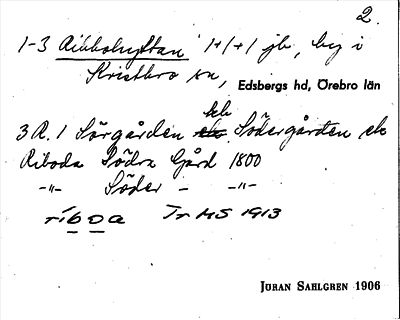 2.
1-3 Ribbohyttan 1+1+1 jb, by i
Kristbro sn, Edsbergs hd, Örebro län
3 R. 1 Sörgården Södergården
Riboda Södra Gård 1800
-"- Söder - -"-
riboa Tr MS 1913
JÖRAN SAHLGREN 1906